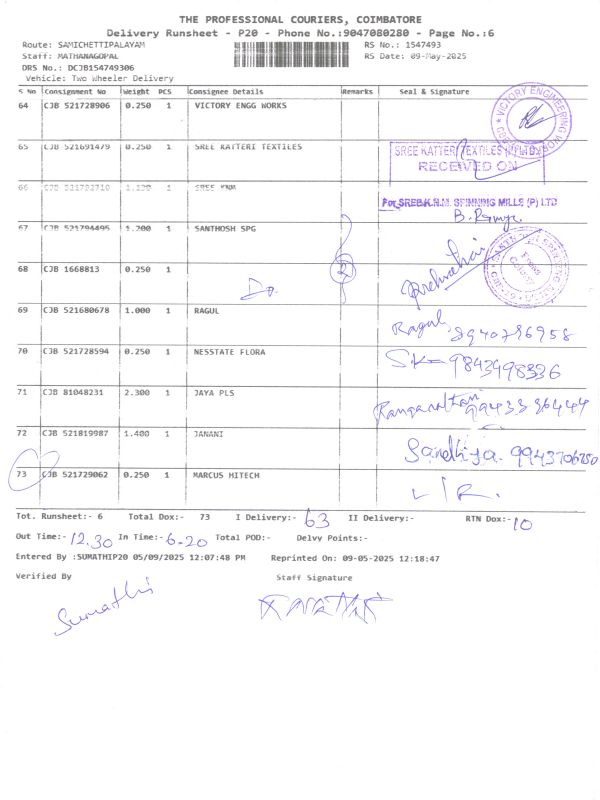 THE PROFESSIONAL COURIERS, COIMBATORE
Delivery Runsheet - P20 - Phone No.:9047080280 - Page No.:6
Route: SAMICHETTIPALAYAM RS No.: 1547493
Staff: MATHANAGOPAL RS Date: 09-May-2025
DRS No.: DCJB154749306
Vehicle: Two Wheeler Delivery
S No Consignment No Weight PCS Consignee Details Remarks Seal & Signature
64 CJB 521728906 0.250 1 VICTORY ENGG WORKS
VICTORY ENGINEERING WORKS
65 CJB 521691479 0.250 1 SREE KATTERI TEXTILES
SREE KATTERI TEXTILES (P) LTD
RECEIVED ON
66 CJB 521792710 1.120 1 SREE KNM
For SREE K.N.M. SPINNING MILLS (P) LTD
67 CJB 521794495 1.200 1 SANTHOSH SPG
68 CJB 1668813 0.250 1
Do. 2
69 CJB 521680678 1.000 1 RAGUL
Ragul 8940786958
70 CJB 521728594 0.250 1 NESSTATE FLORA
SK- 9843498336
71 CJB 81048231 2.300 1 JAYA PLS
99433 86449
72 CJB 521819987 1.400 1 JANANI
Sandhiya. 9943706750
73 CJB 521729062 0.250 1 MARCUS HITECH
L/R.
Tot. Runsheet:- 6 Total Dox:- 73 I Delivery:- 63 II Delivery:- RTN Dox:- 10
Out Time:- 12.30 In Time:- 6-20 Total POD:- Delvy Points:-
Entered By :SUMATHIP20 05/09/2025 12:07:48 PM Reprinted On: 09-05-2025 12:18:47
Verified By Staff Signature
Sumathi